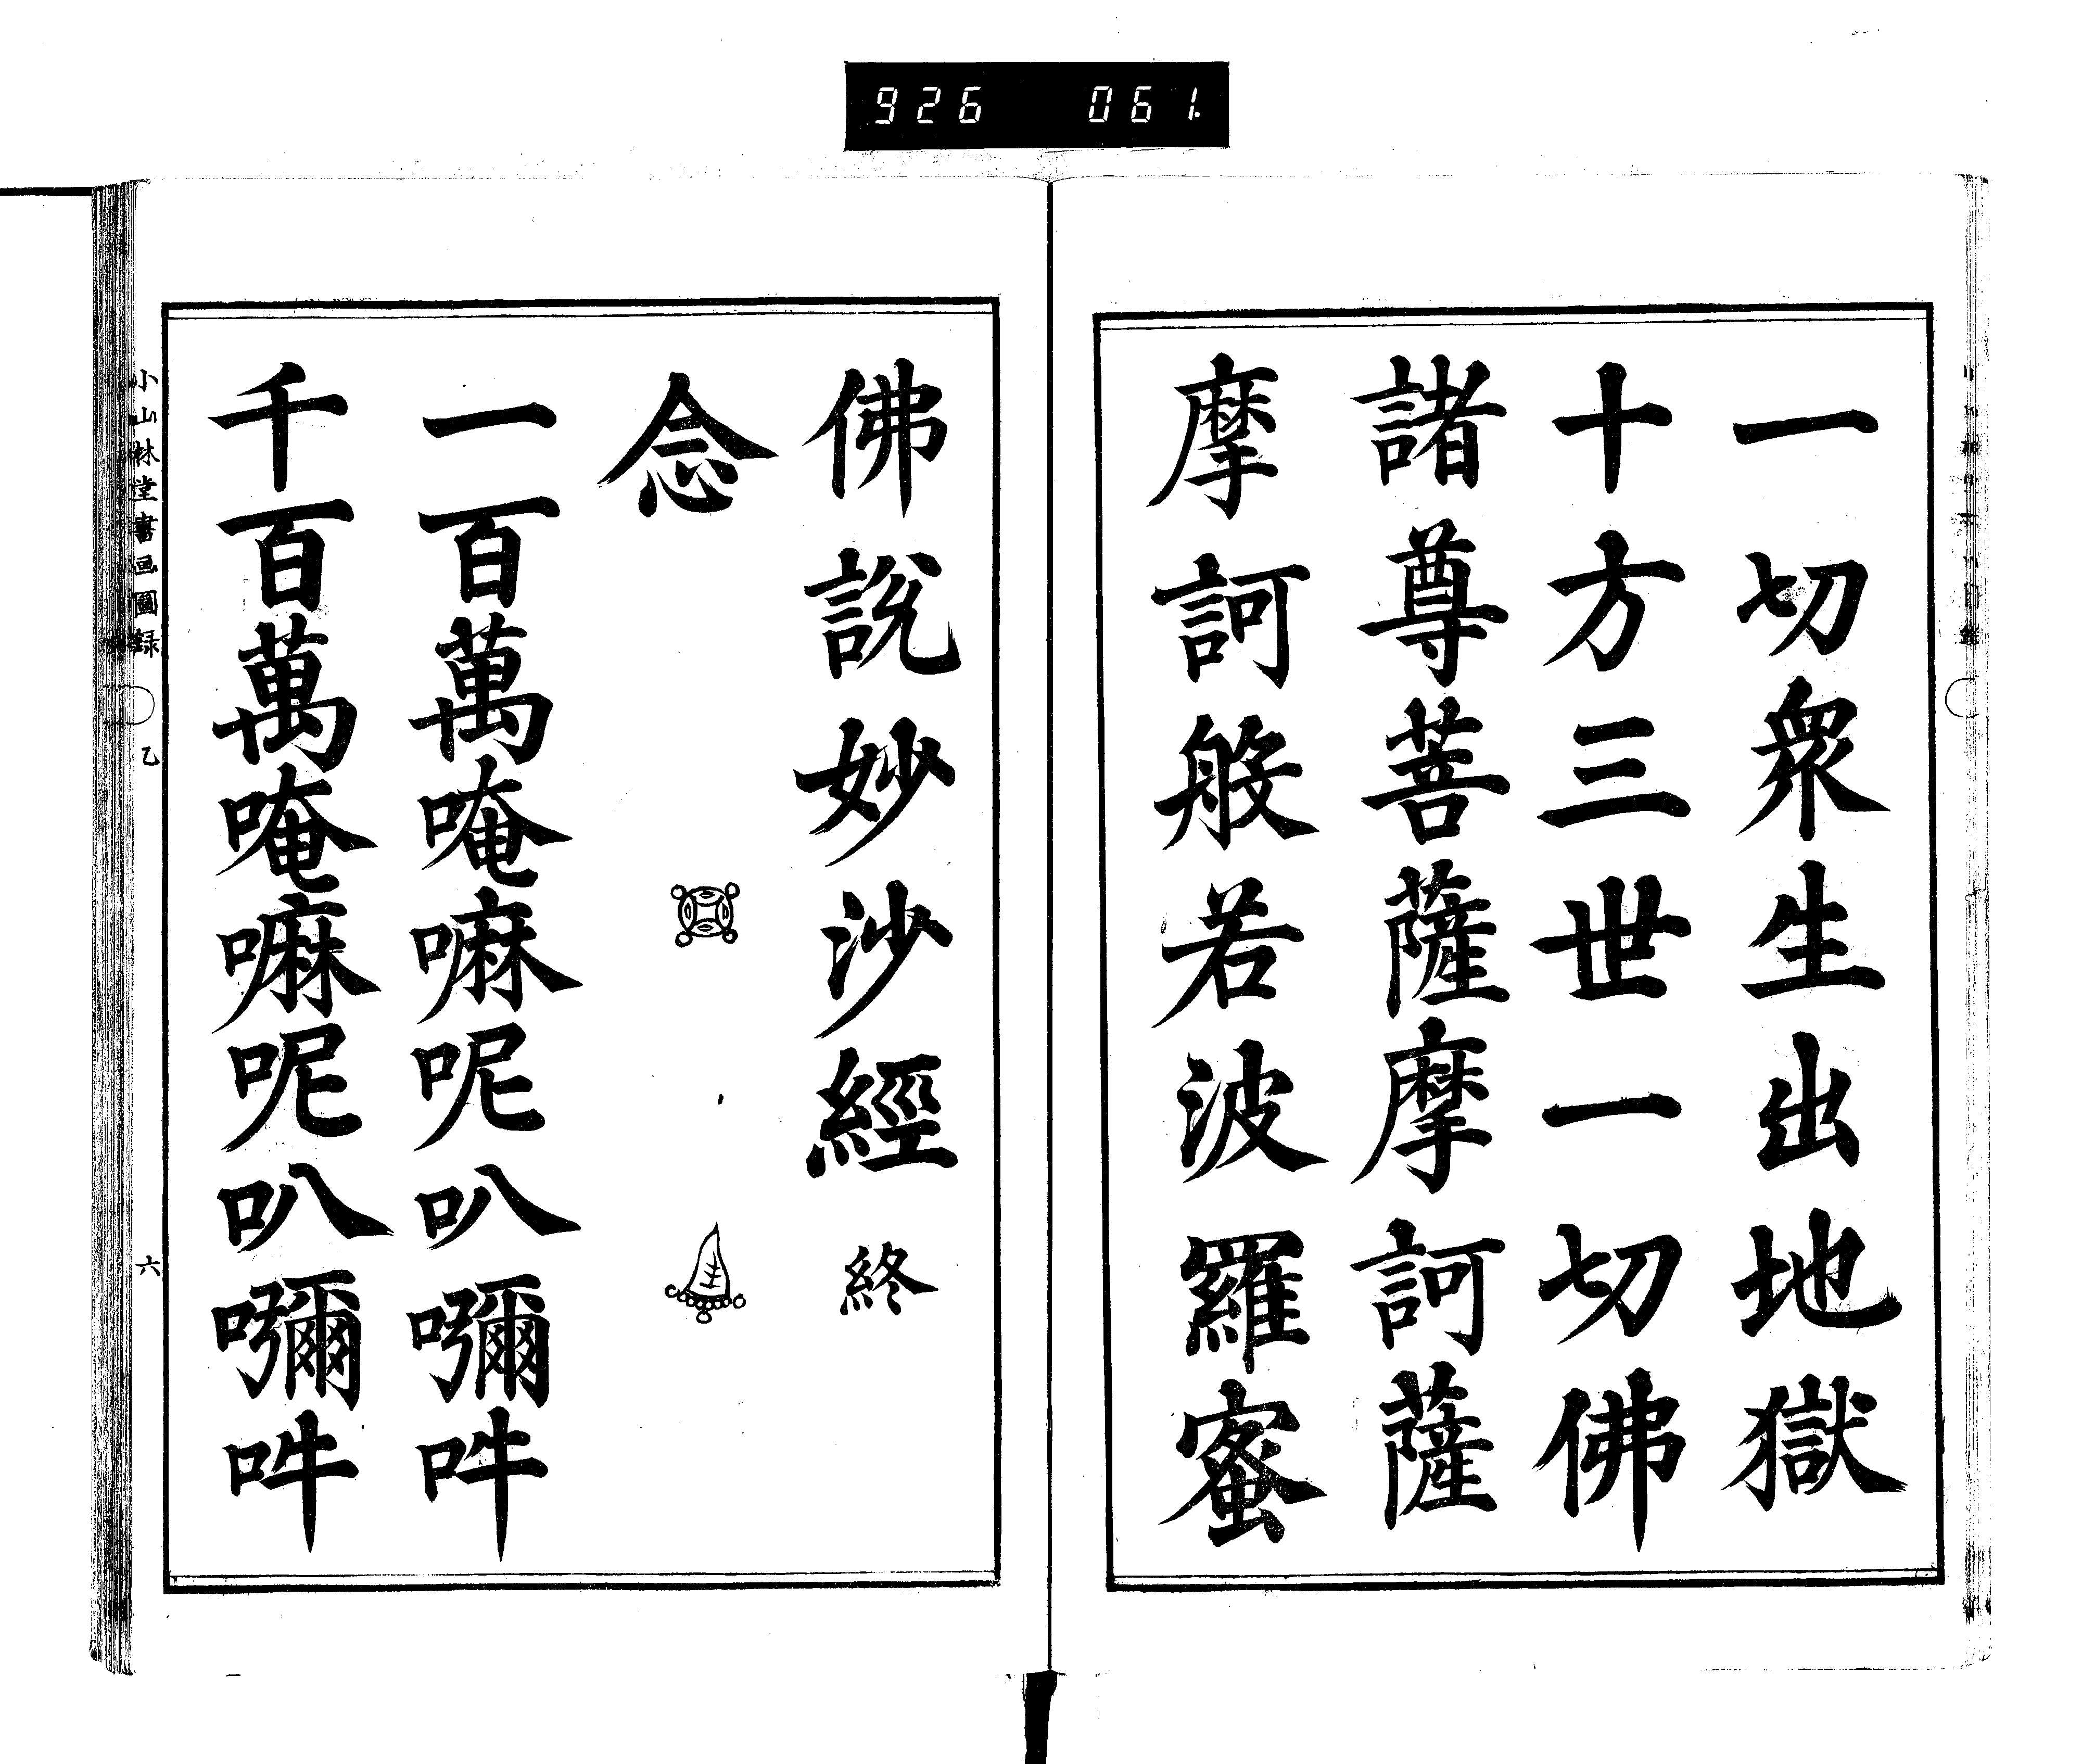 926 061.
一切衆生出地獄
十方三世一切佛
諸尊菩薩摩訶薩
摩訶般若波羅蜜
佛說妙沙經 終
念
一百萬唵嘛呢叭嚩吽
千百萬唵嘛呢叭嚩吽
小山林堂書画圖録 乙 六